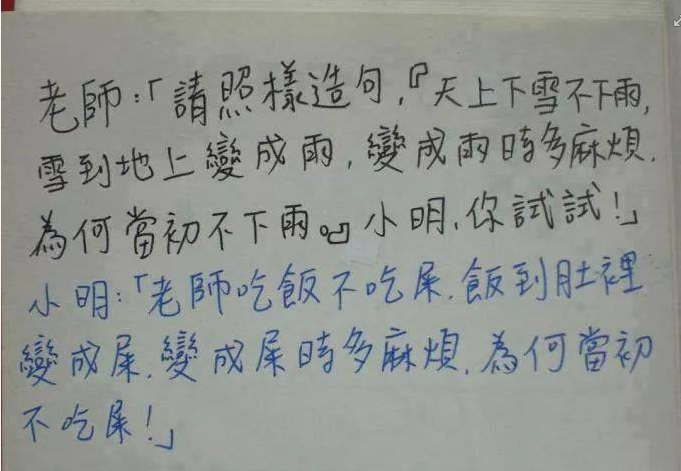 老師:「請照樣造句,『天上下雪不下雨,
雪到地上變成雨,變成雨時多麻煩.
為何當初不下雨。』小明,你試試!」
小明:「老師吃飯不吃屎.飯到肚裡
變成屎.變成屎時多麻煩.為何當初
不吃屎!」